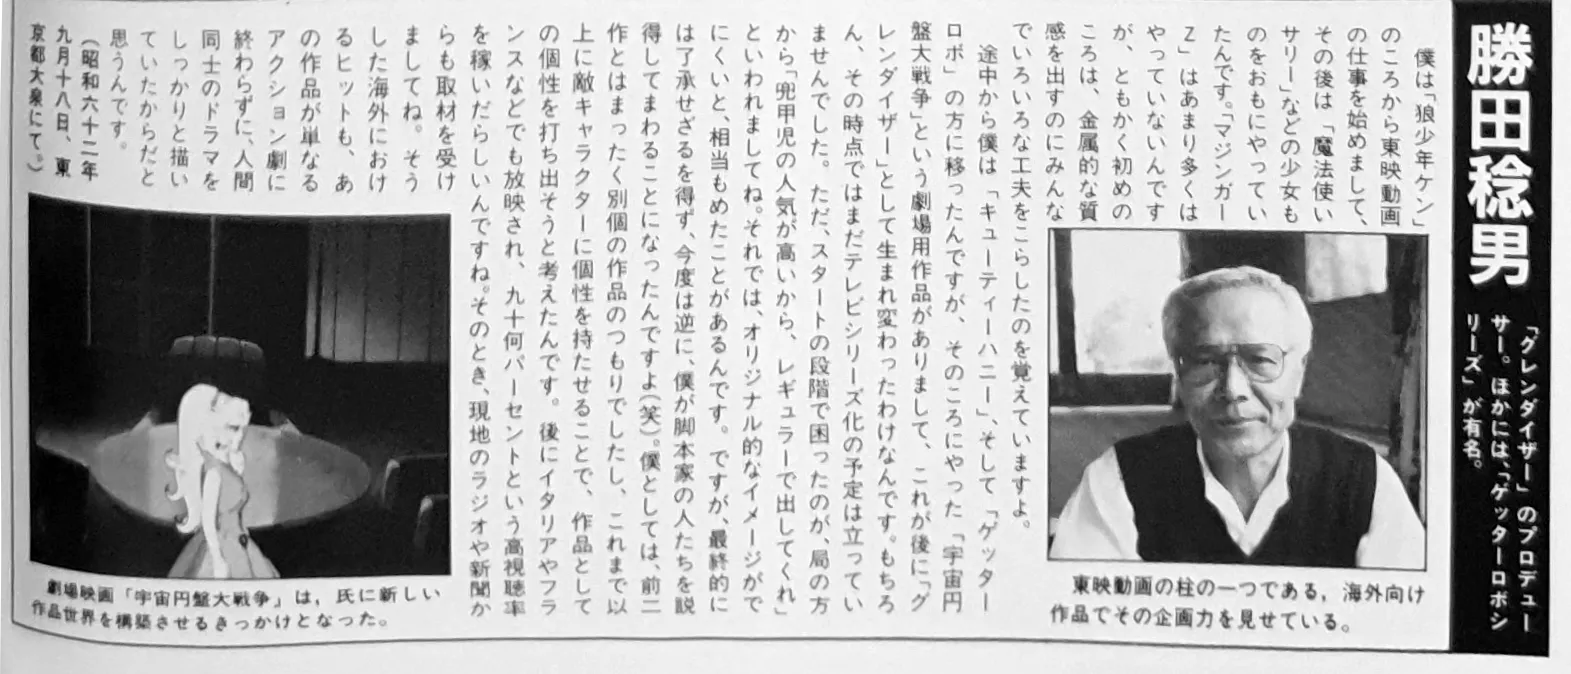 勝田稔男
「グレンダイザー」のプロデュー
サー。ほかには、「ゲッターロボシ
リーズ」が有名。
僕は「狼少年ケン」
のころから東映動画
の仕事を始めまして、
その後は「魔法使い
サリー」などの少女も
のをおもにやってい
たんです。「マジンガー
Z」はあまり多くは
やっていないんです
が、ともかく初めの
ころは、金属的な質
感を出すのにみんな
でいろいろな工夫をこらしたのを覚えていますよ。
途中から僕は「キューティーハニー」、そして「ゲッター
ロボ」の方に移ったんですが、そのころにやった「宇宙円
盤大戦争」という劇場用作品がありまして、これが後に「グ
レンダイザー」として生まれ変わったわけなんです。もちろ
ん、その時点ではまだテレビシリーズ化の予定は立ってい
ませんでした。ただ、スタートの段階で困ったのが、局の方
から「兜甲児の人気が高いから、レギュラーで出してくれ」
といわれましてね。それでは、オリジナル的なイメージがで
にくいと、相当もめたことがあるんです。ですが、最終的に
は了承せざるを得ず、今度は逆に、僕が脚本家の人たちを説
得してまわることになったんですよ(笑)。僕としては、前二
作とはまったく別個の作品のつもりでしたし、これまで以
上に敵キャラクターに個性を持たせることで、作品として
の個性を打ち出そうと考えたんです。後にイタリアやフラ
ンスなどでも放映され、九十何パーセントという高視聴率
を稼いだらしいんですね。そのとき、現地のラジオや新聞か
らも取材を受け
ましてね。そう
した海外におけ
るヒットも、あ
の作品が単なる
アクション劇に
終わらずに、人間
同士のドラマを
しっかりと描い
ていたからだと
思うんです。
(昭和六十二年
九月十八日、東
京都大泉にて。)
東映動画の柱の一つである,海外向け
作品でその企画力を見せている。
劇場映画「宇宙円盤大戦争」は,氏に新しい
作品世界を構築させるきっかけとなった。